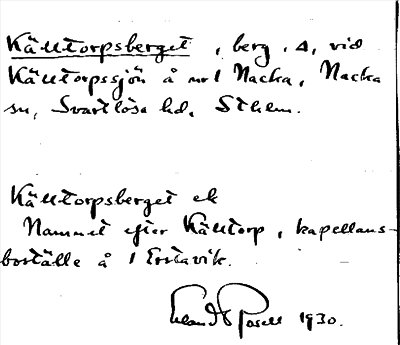 Källtorpsberget, berg, Δ, vid
Källtorpssjön å nr 1 Nacka, Nacka
sn, Svartlösa hd, Sthlm.
Källtorpsberget ek
Namnet efter Källtorp, kapellans-
boställe å 1 Erstavik.
Erland Rosell 1930.